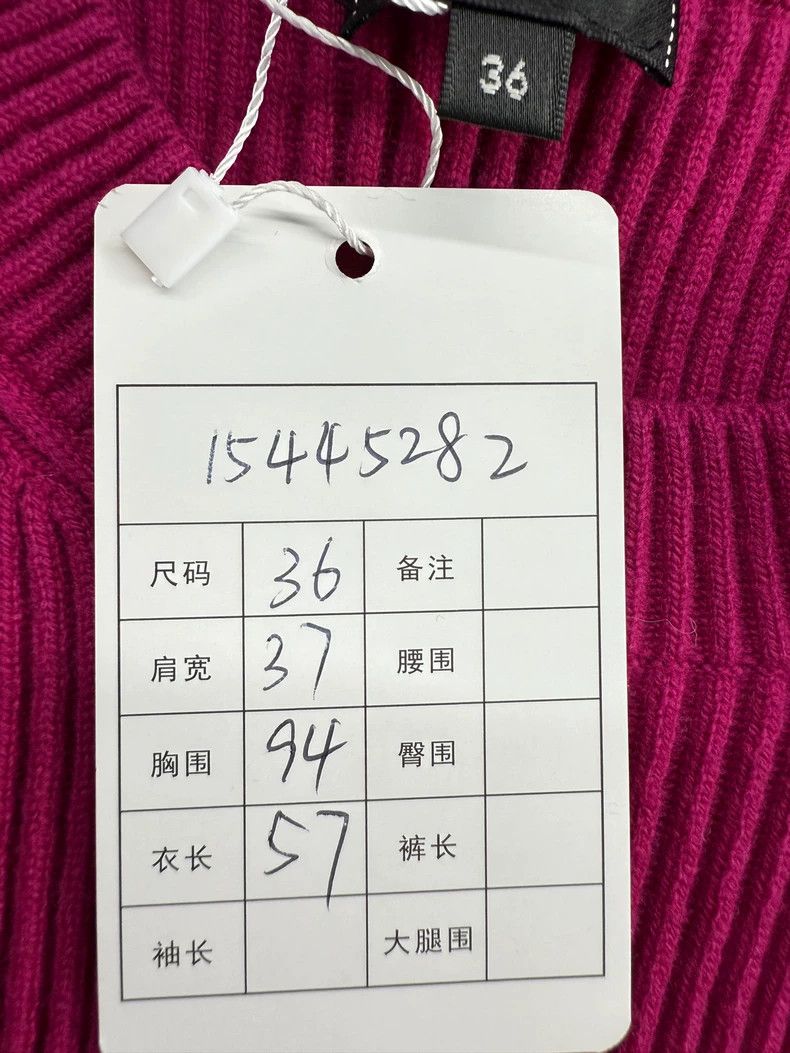 36
15445282
尺码 36 备注
肩宽 37 腰围
胸围 94 臀围
衣长 57 裤长
袖长 大腿围